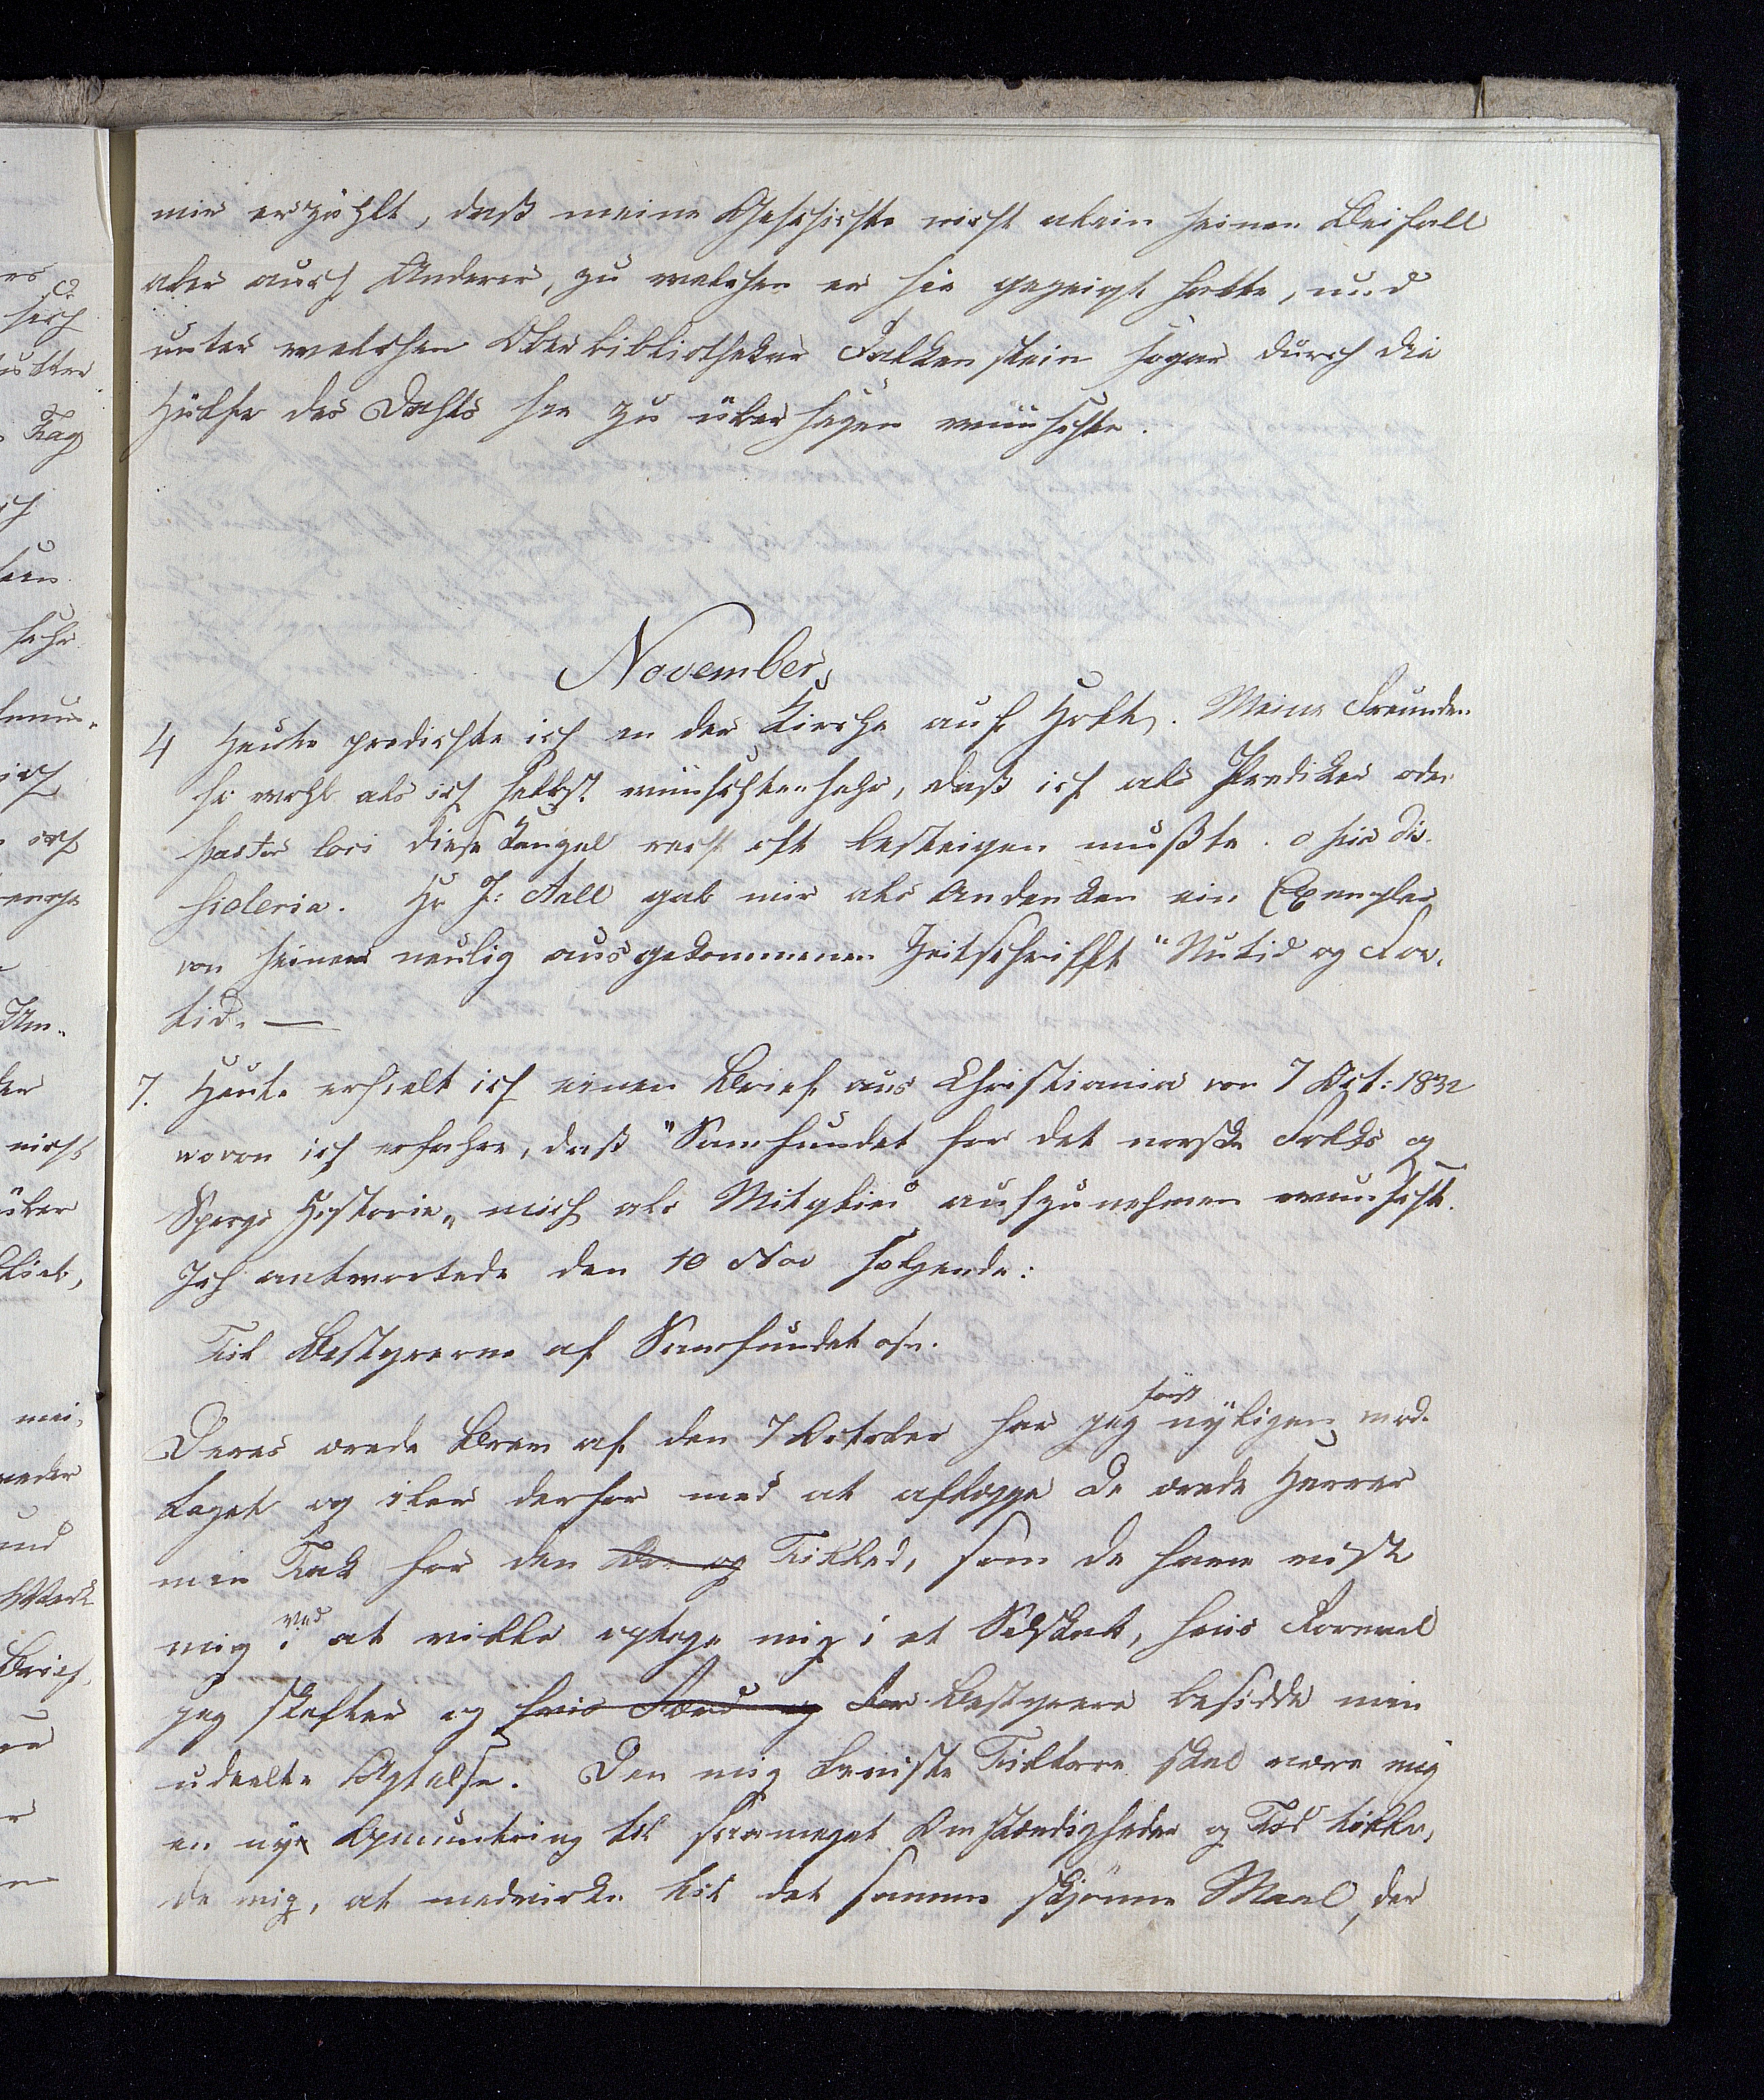 mir erzählt, daß meine Geschichte nicht allein seinen Beifall
aber auch Anderer, zu welchen er sie gezeigt hatte, und
unter welchen Oberbibliothekar Falkenstein sogar durch die
Hülfe des Dahls sie zu übersezen wünschte.
November
4 Heute predichte ich in der Kirche auf Holt. Meine Freunden
so wohl als ich selbst wünschten sehr, daß ich als Prediker oder
pastor loci diese Kanzel recht oft besteigen mußte. o pia de-
sideria. Hr J: Aall gab mir als Andenken ein Exemplar
von seinem neulig ausgekommenen Zeitschrifft "Nutid og For-
tid. —
7. Heute erhielt ich einen Brief aus Christiania von 7 Oct: 1832
wovon ich erfahre, daß "Samfundet for det norske Folks og
Sprogs Historie„ mich als Mitglied aufzunehmen wunscht.
Ich antwortede den 10 Nov folgende:
Til Bestyrerne af Samfundet osv.
Deres ærede Brev af den 7 October har jeg først nyligen mod-
taget og iler derfor med at aflægge de ærede Herrer
min Tak for den og Tillid, som de have viist
mig ved i at ville optage mig i et Selskab, hvis Formaal
jeg skatter og hvis Færd og Bestyrere besidde min
udeelte Agtelse. Den mig beviiste Tiltroe skal være mig
en ny Opmuntring til saameget Omstændigheder og Tid tilla-
de mig, at medvirke til det samme skjönne Maal, der